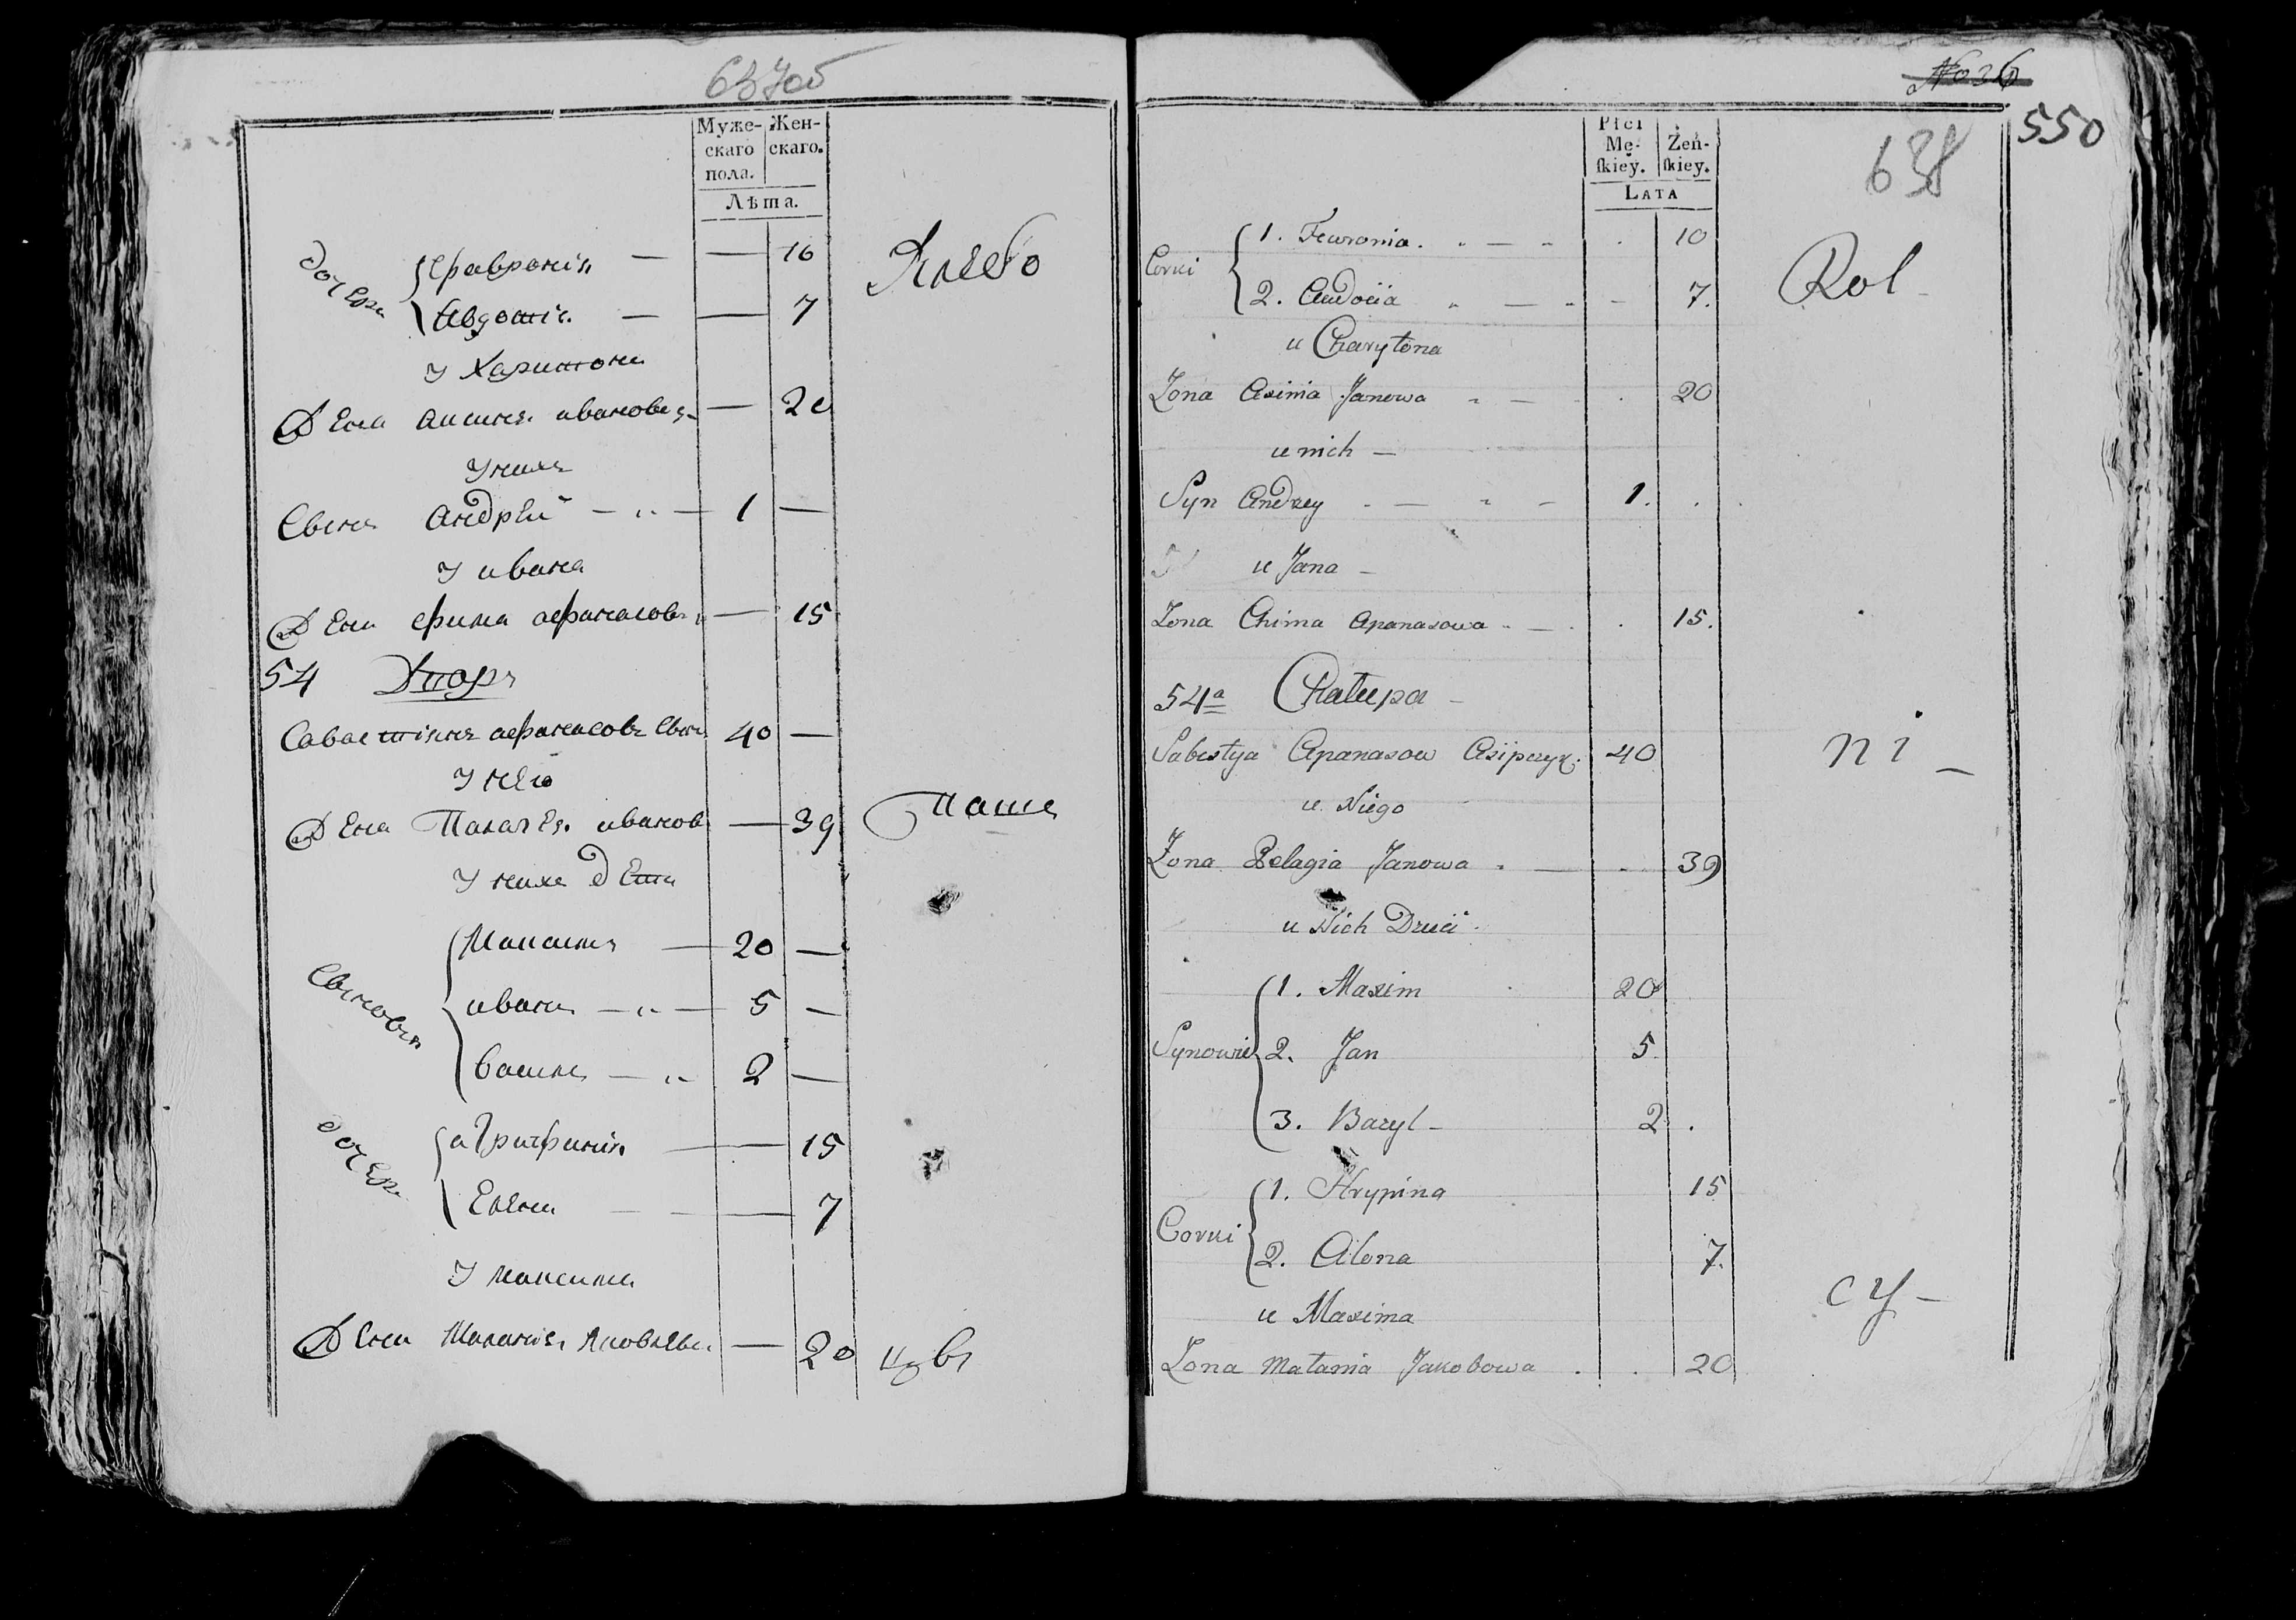 637об
Муже-скаго пола. Жен-скаго.
Лѣта.
дочери Фавронія — — 16 Хлебо
Авдотія — — 7
У Харитона
Жена Аксиня ивановa — 20
У нихъ
Сынъ Андрей — „ — 1 —
У ивана
Жена Фима афанасова — 15
54 Дворъ
Савастіянъ афанасовъ 40 —
У него
Жена Палагея иванова — 39 Паше
У нихъ дети
Сыновья Максимъ — 20 —
иванъ — „ — 5 —
Василь — „ 2 —
дочери аграфинія — — 15
Елена — — 7
У максима
Жена Маланія Яковлева — 20 цовъ
№ 26
550
638
Płci Mę-skiey. Żeń-skiey.
LATA
Corki 1. Fewronia. 10 Rol
2. Audocia 7.
u Charytona
Zona Axinia Janowa 20
u nich —
Syn Andrzey 1.
u Jana —
Zona Chima Apanasowa 15.
54a Chałupa —
Sabestya Apanasow Asipczyk. 40 ni —
u Niego
Zona Pelagia Janowa 39
u Nich Dzieci
Synowie 1. Maxim 20
2. Jan 5
3. Bazyl — 2
Corki 1. Hrypina 15
2. Alona 7.
u Maxima cy —
Zona Małania Jakobowa 20